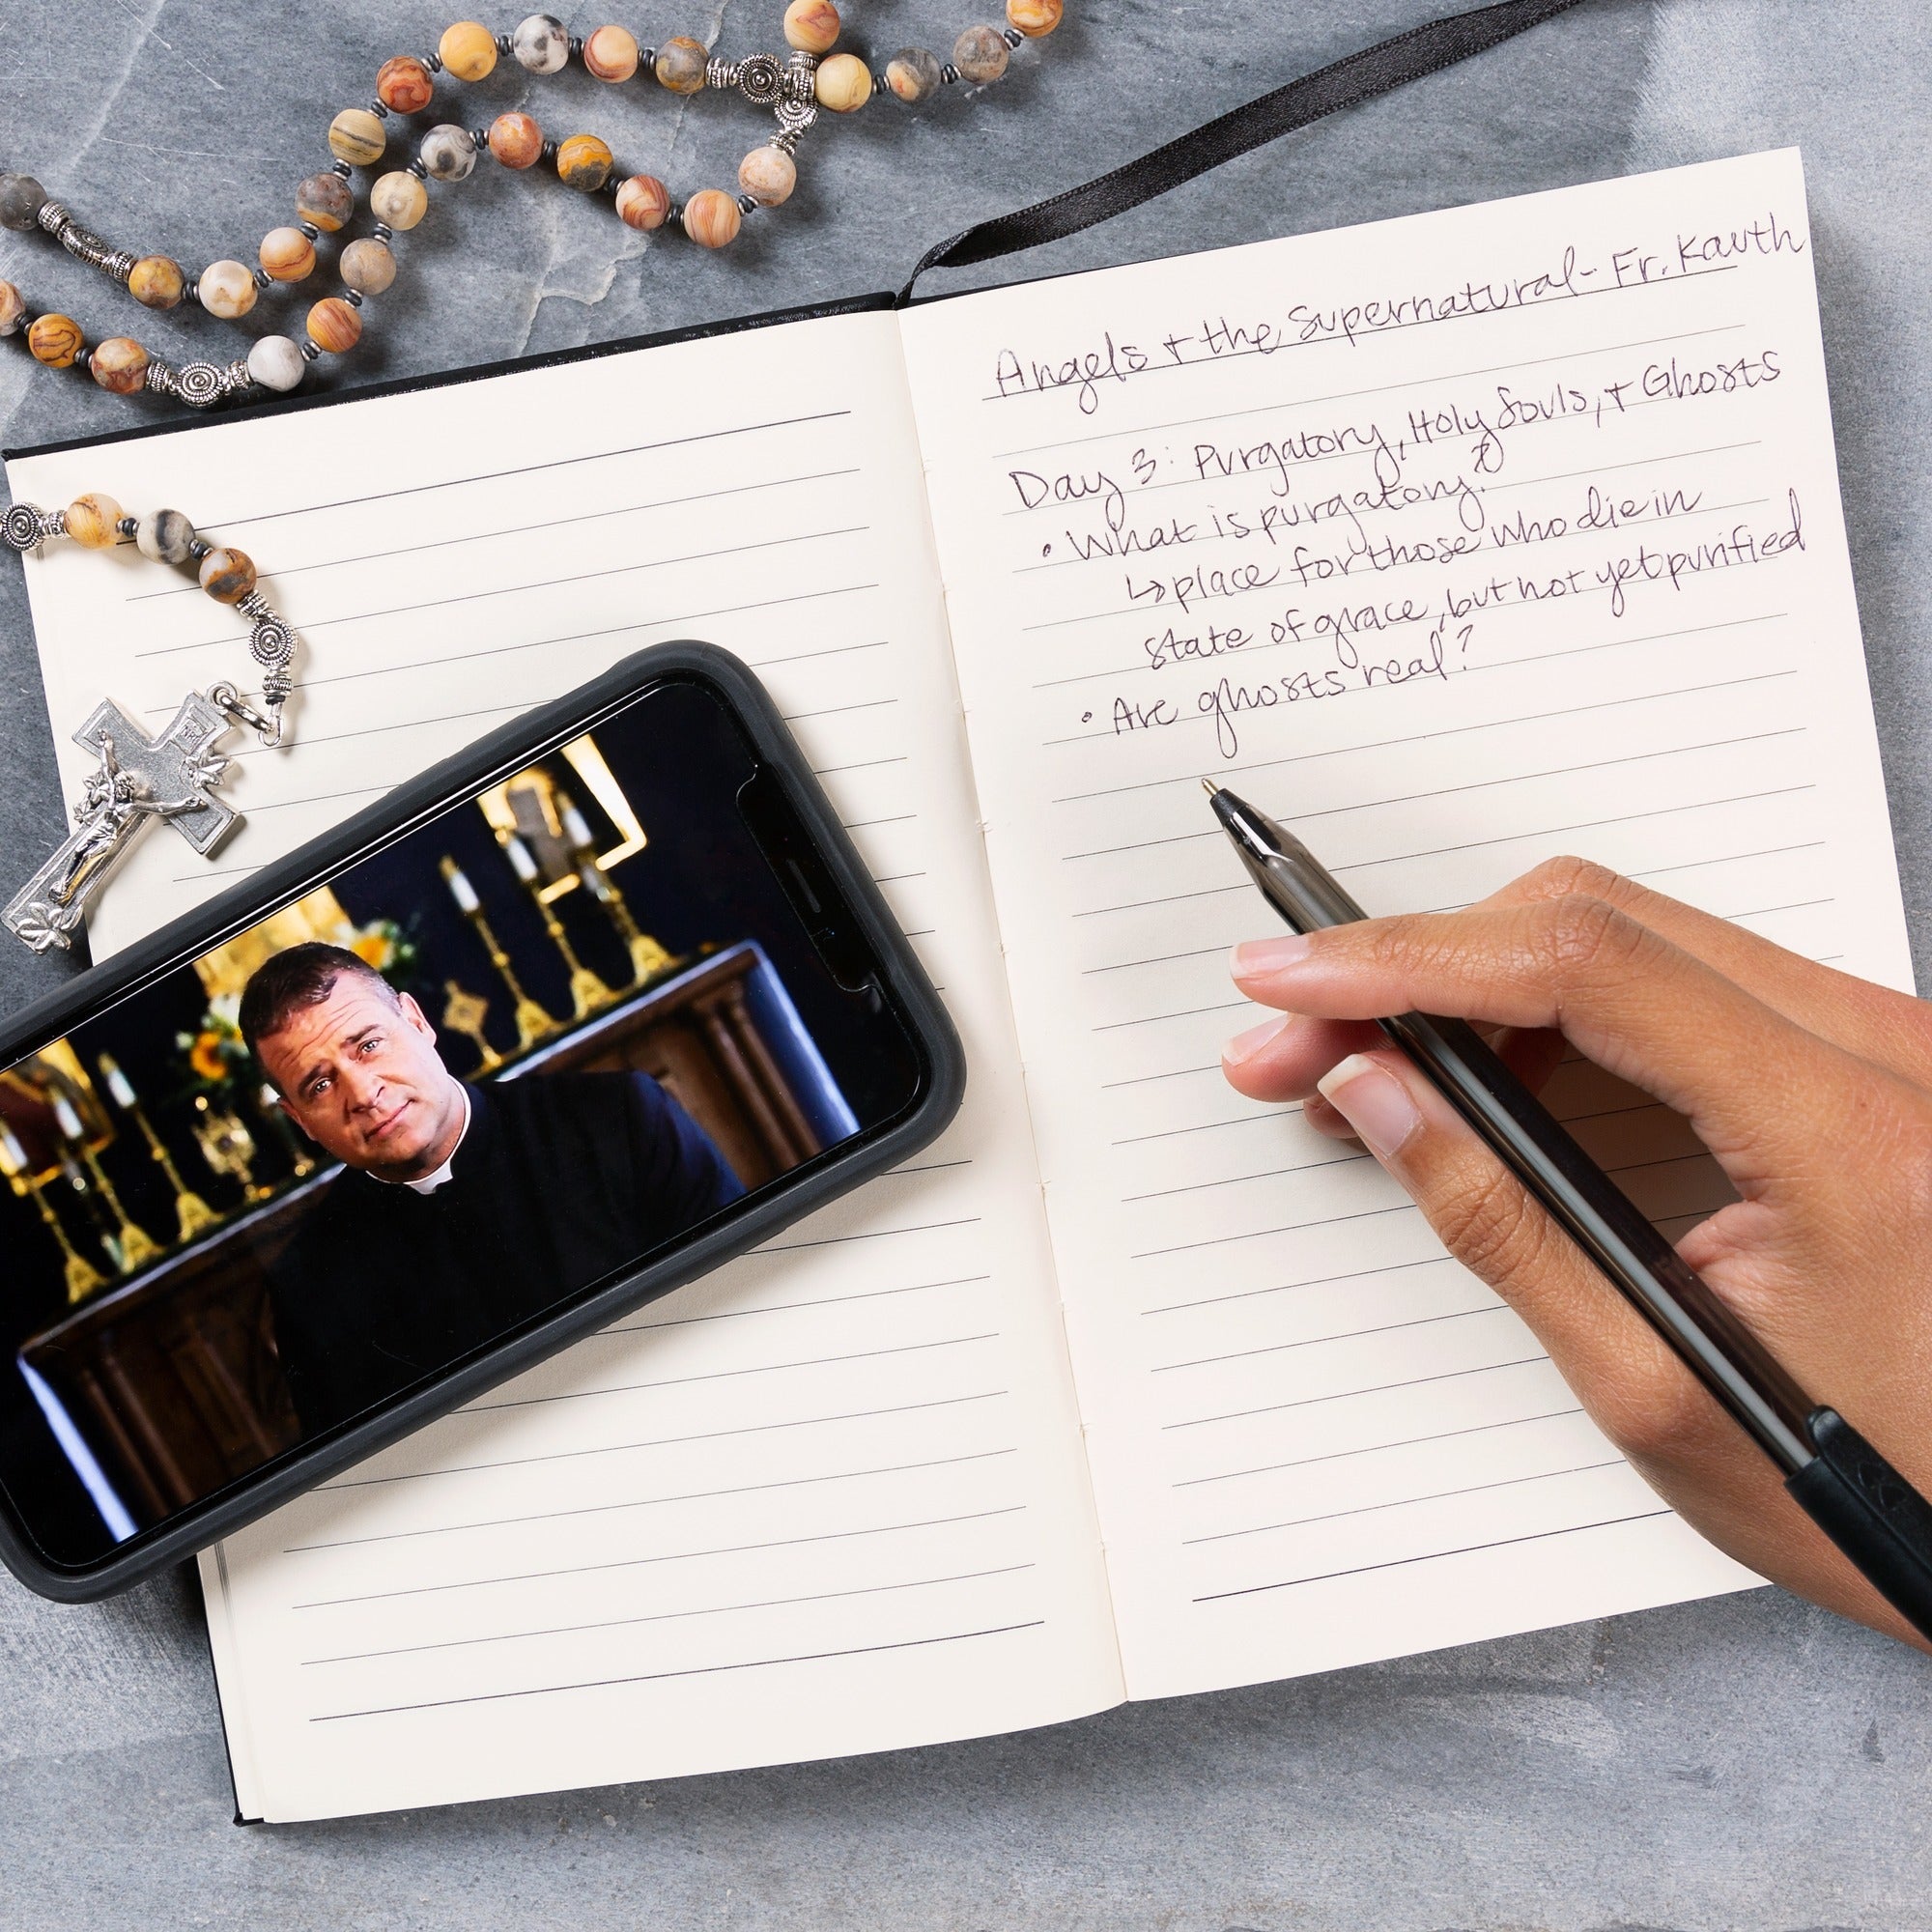 Angels + the Supernatural - Fr. Kauth
Day 3: Purgatory, Holy Souls, + Ghosts
• What is purgatory?
↳ place for those who die in
state of grace, but not yet purified
• Are ghosts real?